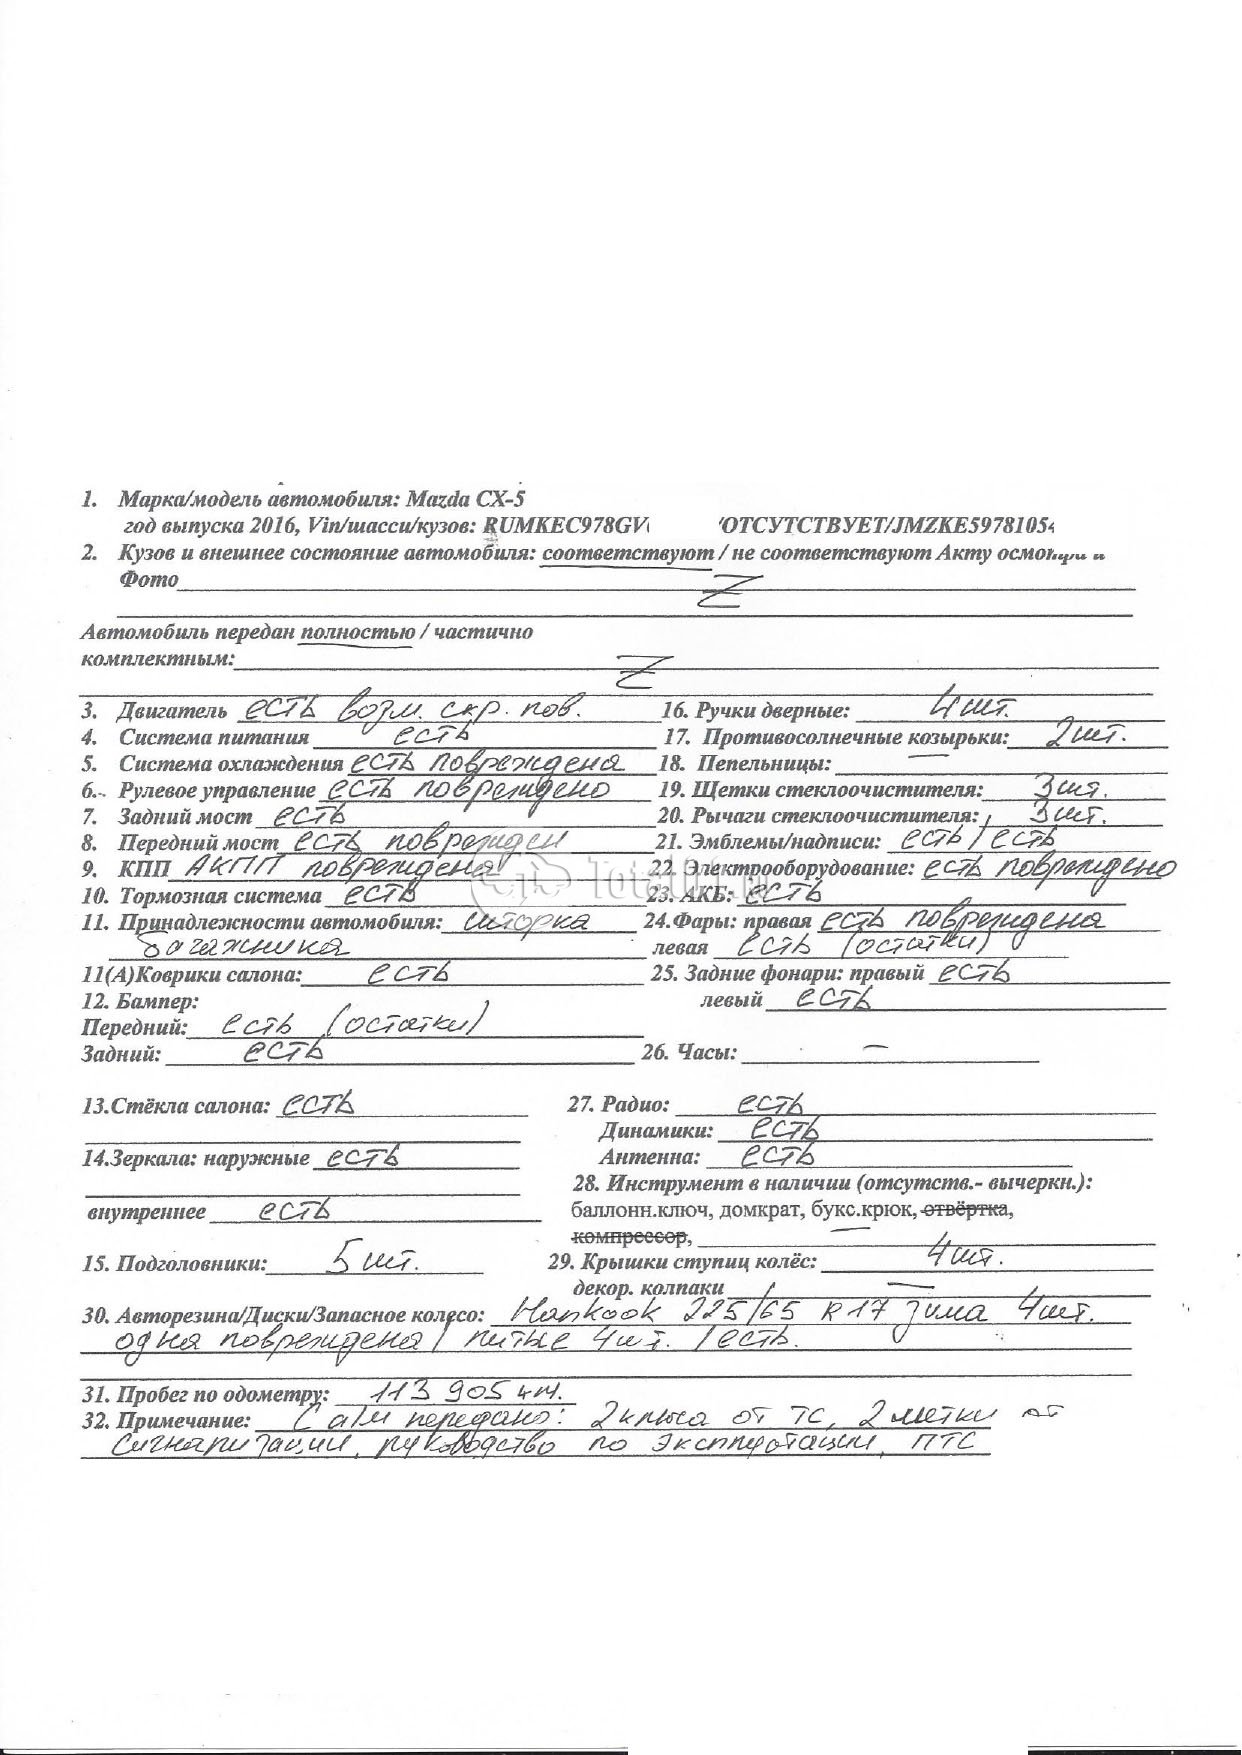 1. Марка/модель автомобиля: Mazda CX-5
год выпуска 2016, Vin/шасси/кузов: RUMKEC978GV ОТСУТСТВУЕТ/JMZKE5978105
2. Кузов и внешнее состояние автомобиля: соответствуют / не соответствуют Акту осмотра и
Фото Z
Автомобиль передан полностью / частично
комплектным: Z
3. Двигатель есть возм. скр. пов. 16. Ручки дверные: 4шт.
4. Система питания есть 17. Противосолнечные козырьки: 2шт.
5. Система охлаждения есть повреждена 18. Пепельницы: —
6. Рулевое управление есть повреждено 19. Щетки стеклоочистителя: 3шт.
7. Задний мост есть 20. Рычаги стеклоочистителя: 3шт.
8. Передний мост есть поврежден 21. Эмблемы/надписи: есть / есть
9. КПП АКПП повреждена 22. Электрооборудование: есть повреждено
10. Тормозная система есть 23. АКБ: есть
11. Принадлежности автомобиля: шторка 24.Фары: правая есть повреждена
багажника левая есть (остатки)
11(А)Коврики салона: есть 25. Задние фонари: правый есть
12. Бампер: левый есть
Передний: есть (остатки)
Задний: есть 26. Часы: —
13.Стёкла салона: есть 27. Радио: есть
Динамики: есть
14.Зеркала: наружные есть Антенна: есть
28. Инструмент в наличии (отсутств.- вычеркн.):
внутреннее есть баллонн.ключ, домкрат, букс.крюк, отвёртка,
компрессор, —
15. Подголовники: 5 шт. 29. Крышки ступиц колёс: 4шт.
декор. колпаки —
30. Авторезина/Диски/Запасное колесо: Hankook 225/65 R17 зима 4шт.
одна повреждена / литые 4шт. / есть.
31. Пробег по одометру: 113 905 км.
32. Примечание: С а/м передано: 2 ключа от ТС, 2 метки от
сигнализации, руководство по эксплуатации, ПТС